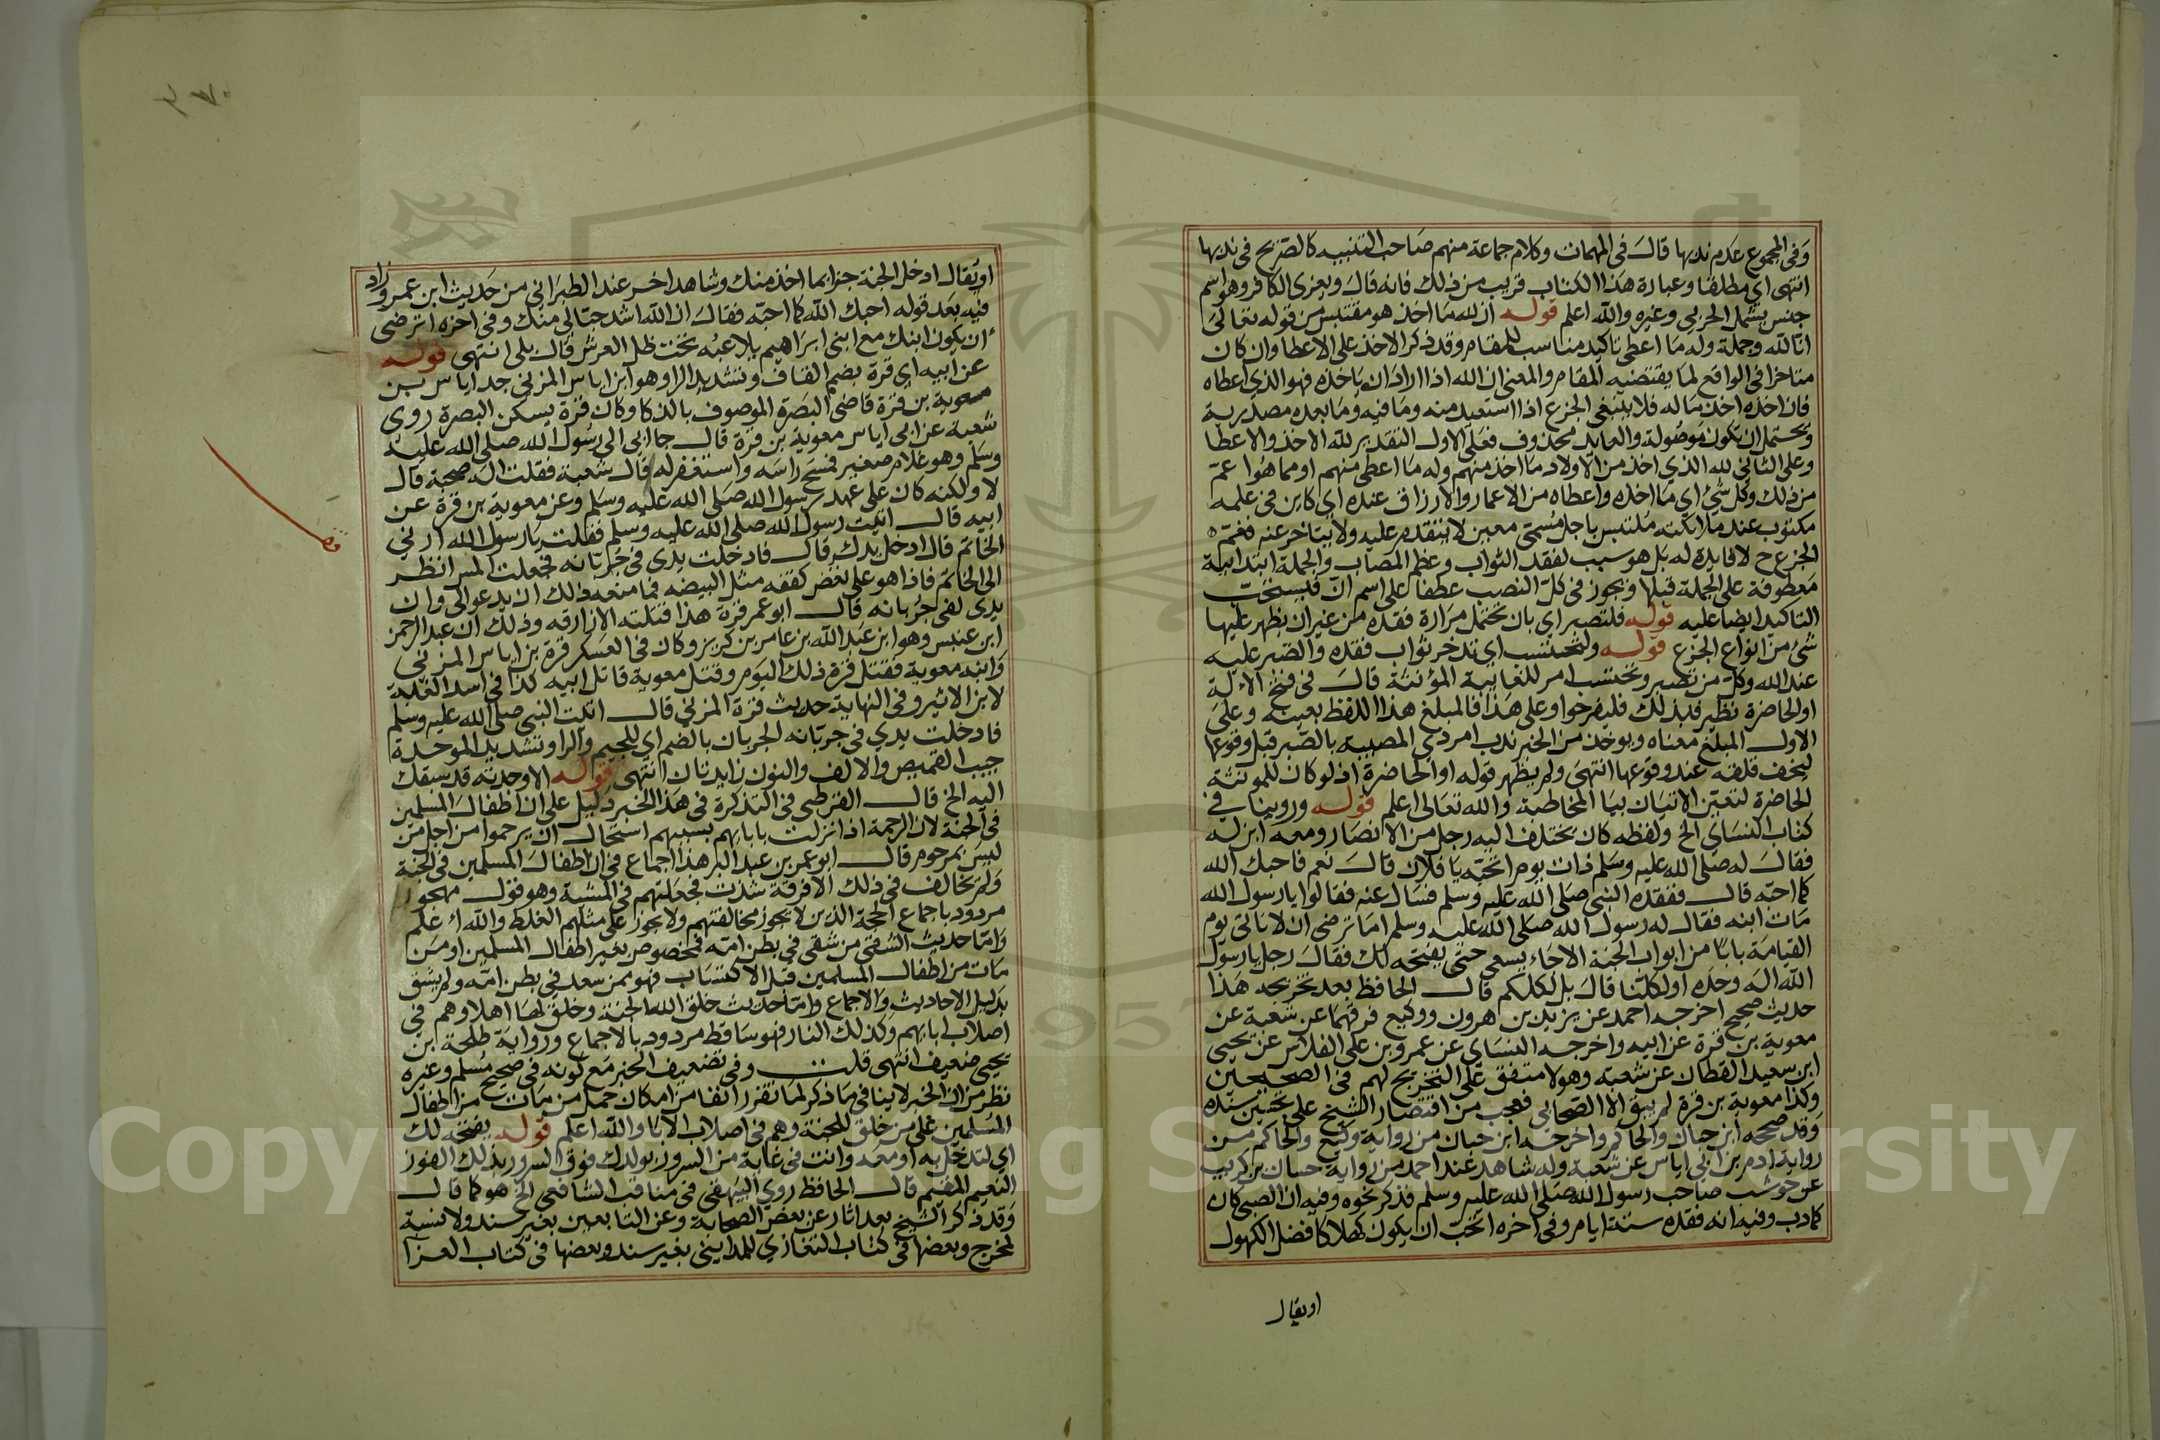 وفي المجموع عدم ندبها قال في المهمات وكلام جماعة منهم صاحب التنبيه كالصريح في ندبها
انتهى اي مطلقا وعبارة هذا الكتاب قريب من ذلك فانه قال ويعزى الكافر وهو اسم
جنس يشمل الحربي وغيره والله اعلم قوله ان لله ما اخذ هو مقتبس من قوله تعالى
انا لله وجملة وله ما اعطى تاكيد مناسب للمقام وقد ذكر الاخذ على الاعطا وان كان
متاخرا في الواقع لما يقتضيه المقام والمعنى ان الله اذا اراد ان ياخذه فهو الذي اعطاه
فان اخذه اخذ ماله فلا ينبغي الجزع اذا استعيد منه وما فيه وما بعده مصدرية
ويحتمل ان تكون موصولة والعايد محذوف فعلى الاول التقدير لله الاخذ والاعطا
وعلى الثاني لله الذي اخذ من الاولاد ما اخذ منهم وله ما اعطى منهم او مما هو اعم
من ذلك وكل شئ اي ما اخذه واعطاه من الاعمار والارزاق عنده اي كاين في علمه
مكتوب عند ملائكته ملتبس باجل مسمى معين لا يتقدم عليه ولا يتاخر عنه فغم ه
الجزع ح لا فايدة له بل هو سبب لفقد الثواب وعظم المصاب والجملة ابتدايية
معطوفة على الجملة قبلها ويجوز في كل النصب عطفا على اسم ان فينسحب
التاكيد ايضا عليه قوله فلتصبر اي بان تحتمل مرارة فقده من غير ان يظهر عليها
شئ من انواع الجزع قوله ولتحتسب اي تدخر ثواب فقده والصبر عليه
عند الله وكل من تصبر وتحتسب امر للغايبة المؤنثة قال في فتح الاله
او الحاضرة نظير فبذلك فليفرحوا وعلى هذا فالمبلغ هذا اللفظ بعينه وعلى
الاول المبلغ معناه ويوخذ من الخبر ندب امر ذي المصيبة بالصبر قبل وقوعها
ليخف قلقه عند وقوعها انتهى ولم يظهر قوله او الحاضرة اذ لو كان للمونثة
الحاضرة لتعين الاتيان بيا المخاطبة والله تعالى اعلم قوله وروينا في
كتاب النساي الخ ولفظه كان يختلف اليه رجل من الانصار ومعه ابن له
فقال له صلى الله عليه وسلم ذات يوم اتحبه يا فلان قال نعم فاحبك الله
كما احبه قال ففقده النبي صلى الله عليه وسلم فسال عنه فقالوا يا رسول الله
مات ابنه فقال له رسول الله صلى الله عليه وسلم اما ترضى ان لا تاتي يوم
القيامة بابا من ابواب الجنة الا جاء يسعى حتى يفتحه لك فقال رجل يا رسول
الله اله وحده او لكلنا قال بل لكلكم قال الحافظ بعد تخريجه هذا
حديث صحيح اخرجه احمد عن يزيد بن هرون ووكيع فرقهما عن شعبة عن
معوية بن قرة عن ابيه واخرجه النساي عن عمرو بن علي الفلاس عن يحيى
ابن سعيد القطان عن شعبة وهولا متفق على التخريج لهم في الصحيحين
وكذا معوية بن قرة لم يبق الا الصحابي فعجب من اقتصار الشيخ على تحسين سنده
وقد صححه ابن حبان والحاكم واخرجه ابن حبان من رواية وكيع والحاكم من
رواية ادم بن ابي اياس عن شعبة وله شاهد عند احمد من رواية حسان بن كريب
عن حوشب صاحب رسول الله صلى الله عليه وسلم فذكر نحوه وفيه ان الصبي كان
كما دب وفيه انه فقده ستة ايام وفي اخره اتحب ان يكون كهلا كافضل الكهول
او يقال
او يقال ادخل الجنة جزا بما اخذ منك وشاهد اخر عند الطبراني من حديث ابن عمرو زاد
فيه بعد قوله احبك الله كما احبه فقال ان الله اشد حبا لي منك وفي اخره اترضى
ان يكون ابنك مع ابني ابراهيم يلاعبه تحت ظل العرش قال بلى انتهى قوله
عن ابيه اي قرة بضم القاف وتشديد الرا وهو ابن اياس المزني جد اياس بن
معوية بن قرة قاضي البصرة الموصوف بالذكا وكان قرة يسكن البصرة روى
شعبة عن ابي اياس معوية بن قرة قال جا ابي الى رسول الله صلى الله عليه
وسلم وهو غلام صغير فمسح راسه واستغفر له قال شعبة فقلت اله صحبة قال
لا ولكنه كان على عهد رسول الله صلى الله عليه وسلم وعن معوية بن قرة عن
ابيه قال اتيت رسول الله صلى الله عليه وسلم فقلت يا رسول الله ارني
الخاتم قال ادخل يدك قال فادخلت يدي في جربانه فجعلت المس انظر
الى الخاتم فاذا هو على نغض كتفه مثل البيضه فما منعه ذلك ان يدعو لي وان
يدي لفي جربانه قال ابو عمر قرة هذا قتلته الازارقه وذلك ان عبد الرحمن
ابن عبيس وهو ابن عبد الله بن عامر بن كريز وكان في العسكر قرة بن اياس المزني
وابنه معوية فقتل قرة ذلك اليوم وقتل معوية قاتل ابيه كذا في اسد الغابة
لابن الاثير وفي النهاية حديث قرة المزني قال اتيت النبي صلى الله عليه وسلم
فادخلت يدي في جربانه الجربان بالضم اي للجيم والرا وتشديد الموحدة
جيب القميص والالف والنون زايدتان انتهى قوله الا وجدته قد سبقك
اليه الخ قال القرطبي في التذكرة في هذا الخبر دليل على ان اطفال المسلمين
في الجنة لان الرحمة اذا نزلت باباىهم بسببهم استحال ان يرحموا من اجل من
ليس بمرحوم قال ابو عمر بن عبد البر هذا اجماع في ان اطفال المسلمين في الجنة
ولم يخالف في ذلك الا فرقة شذت فجعلتهم في المشية وهو قول مهجور
مردود باجماع الحجة الذين لا تجوز مخالفتهم ولا يجوز على مثلهم الغلط والله اعلم
واما حديث الشقي من شقي في بطن امه فمخصوص بغير اطفال المسلمين او من
مات من اطفال المسلمين قبل الاكتساب فهو ممن سعد في بطن امه ولم يشق
بدليل الاحاديث والاجماع واما حديث خلق الله الجنة وخلق لها اهلا وهم في
اصلاب اباىهم وكذلك النار فهو ساقط مردود بالاجماع ورواية طلحة ابن
يحيى ضعيف انتهى قلت وفي تضعيف الخبر مع كونه في صحيح مسلم وغيره
نظر من ان الخبر لا ينافي ما ذكر لما تقرر انفا من امكان حمل من مات من اطفال
المسلمين على من خلق للجنة وهم في اصلاب الابا والله اعلم قوله يفتحه لك
اي لتدخل به او معه وانت في غاية من السرور بولدك فوق السرور بذلك الفوز
النعيم المقيم قال الحافظ روي البيهقي في مناقب الشافعي الخ هو كما قال
وقد ذكر الشيخ بعد اثار عن بعض الصحابة وعن التابعين بغير سند ولا نسبة
لمخرج وبعضها في كتاب التعازي للمدايني بغير سند وبعضها في كتاب العزا